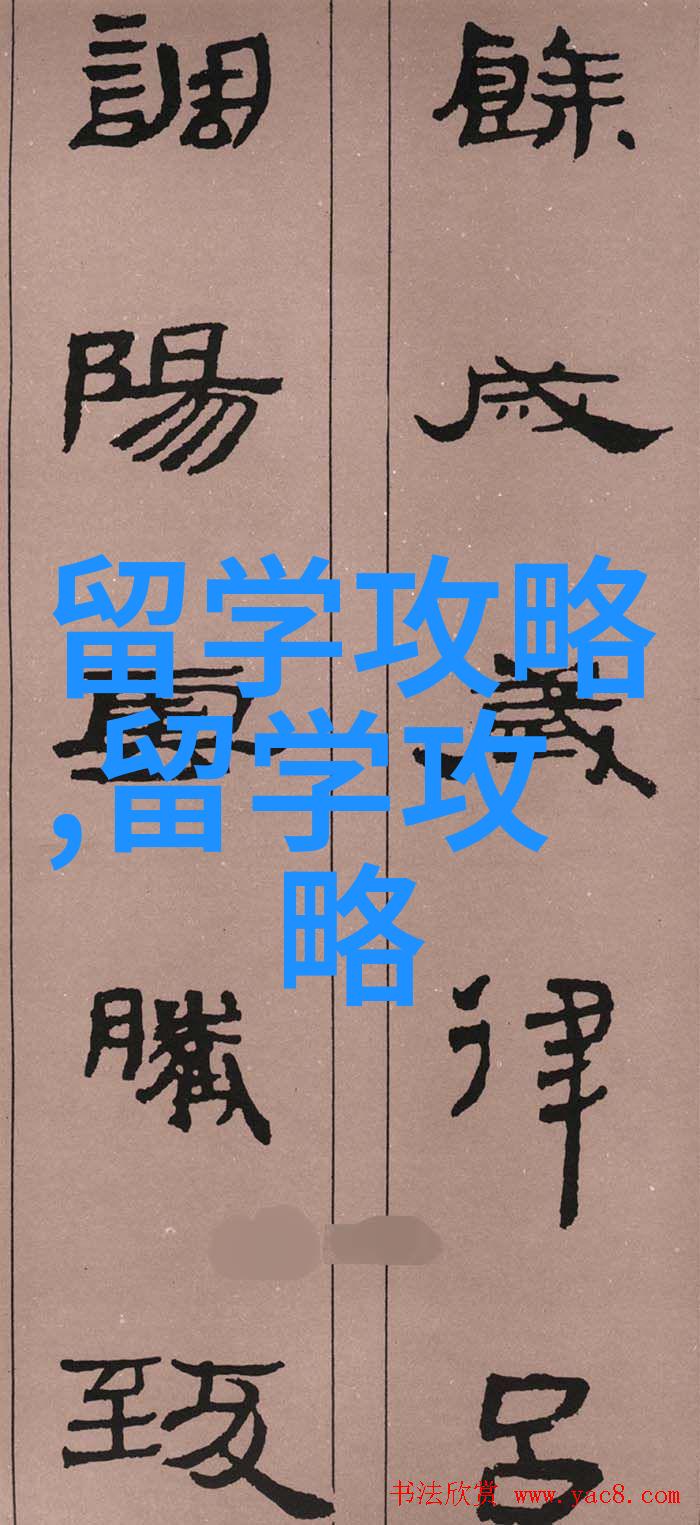 餘成歲律呂
調陽騰致
留学攻略
,留学攻
略
书法欣赏 www.yac8.com